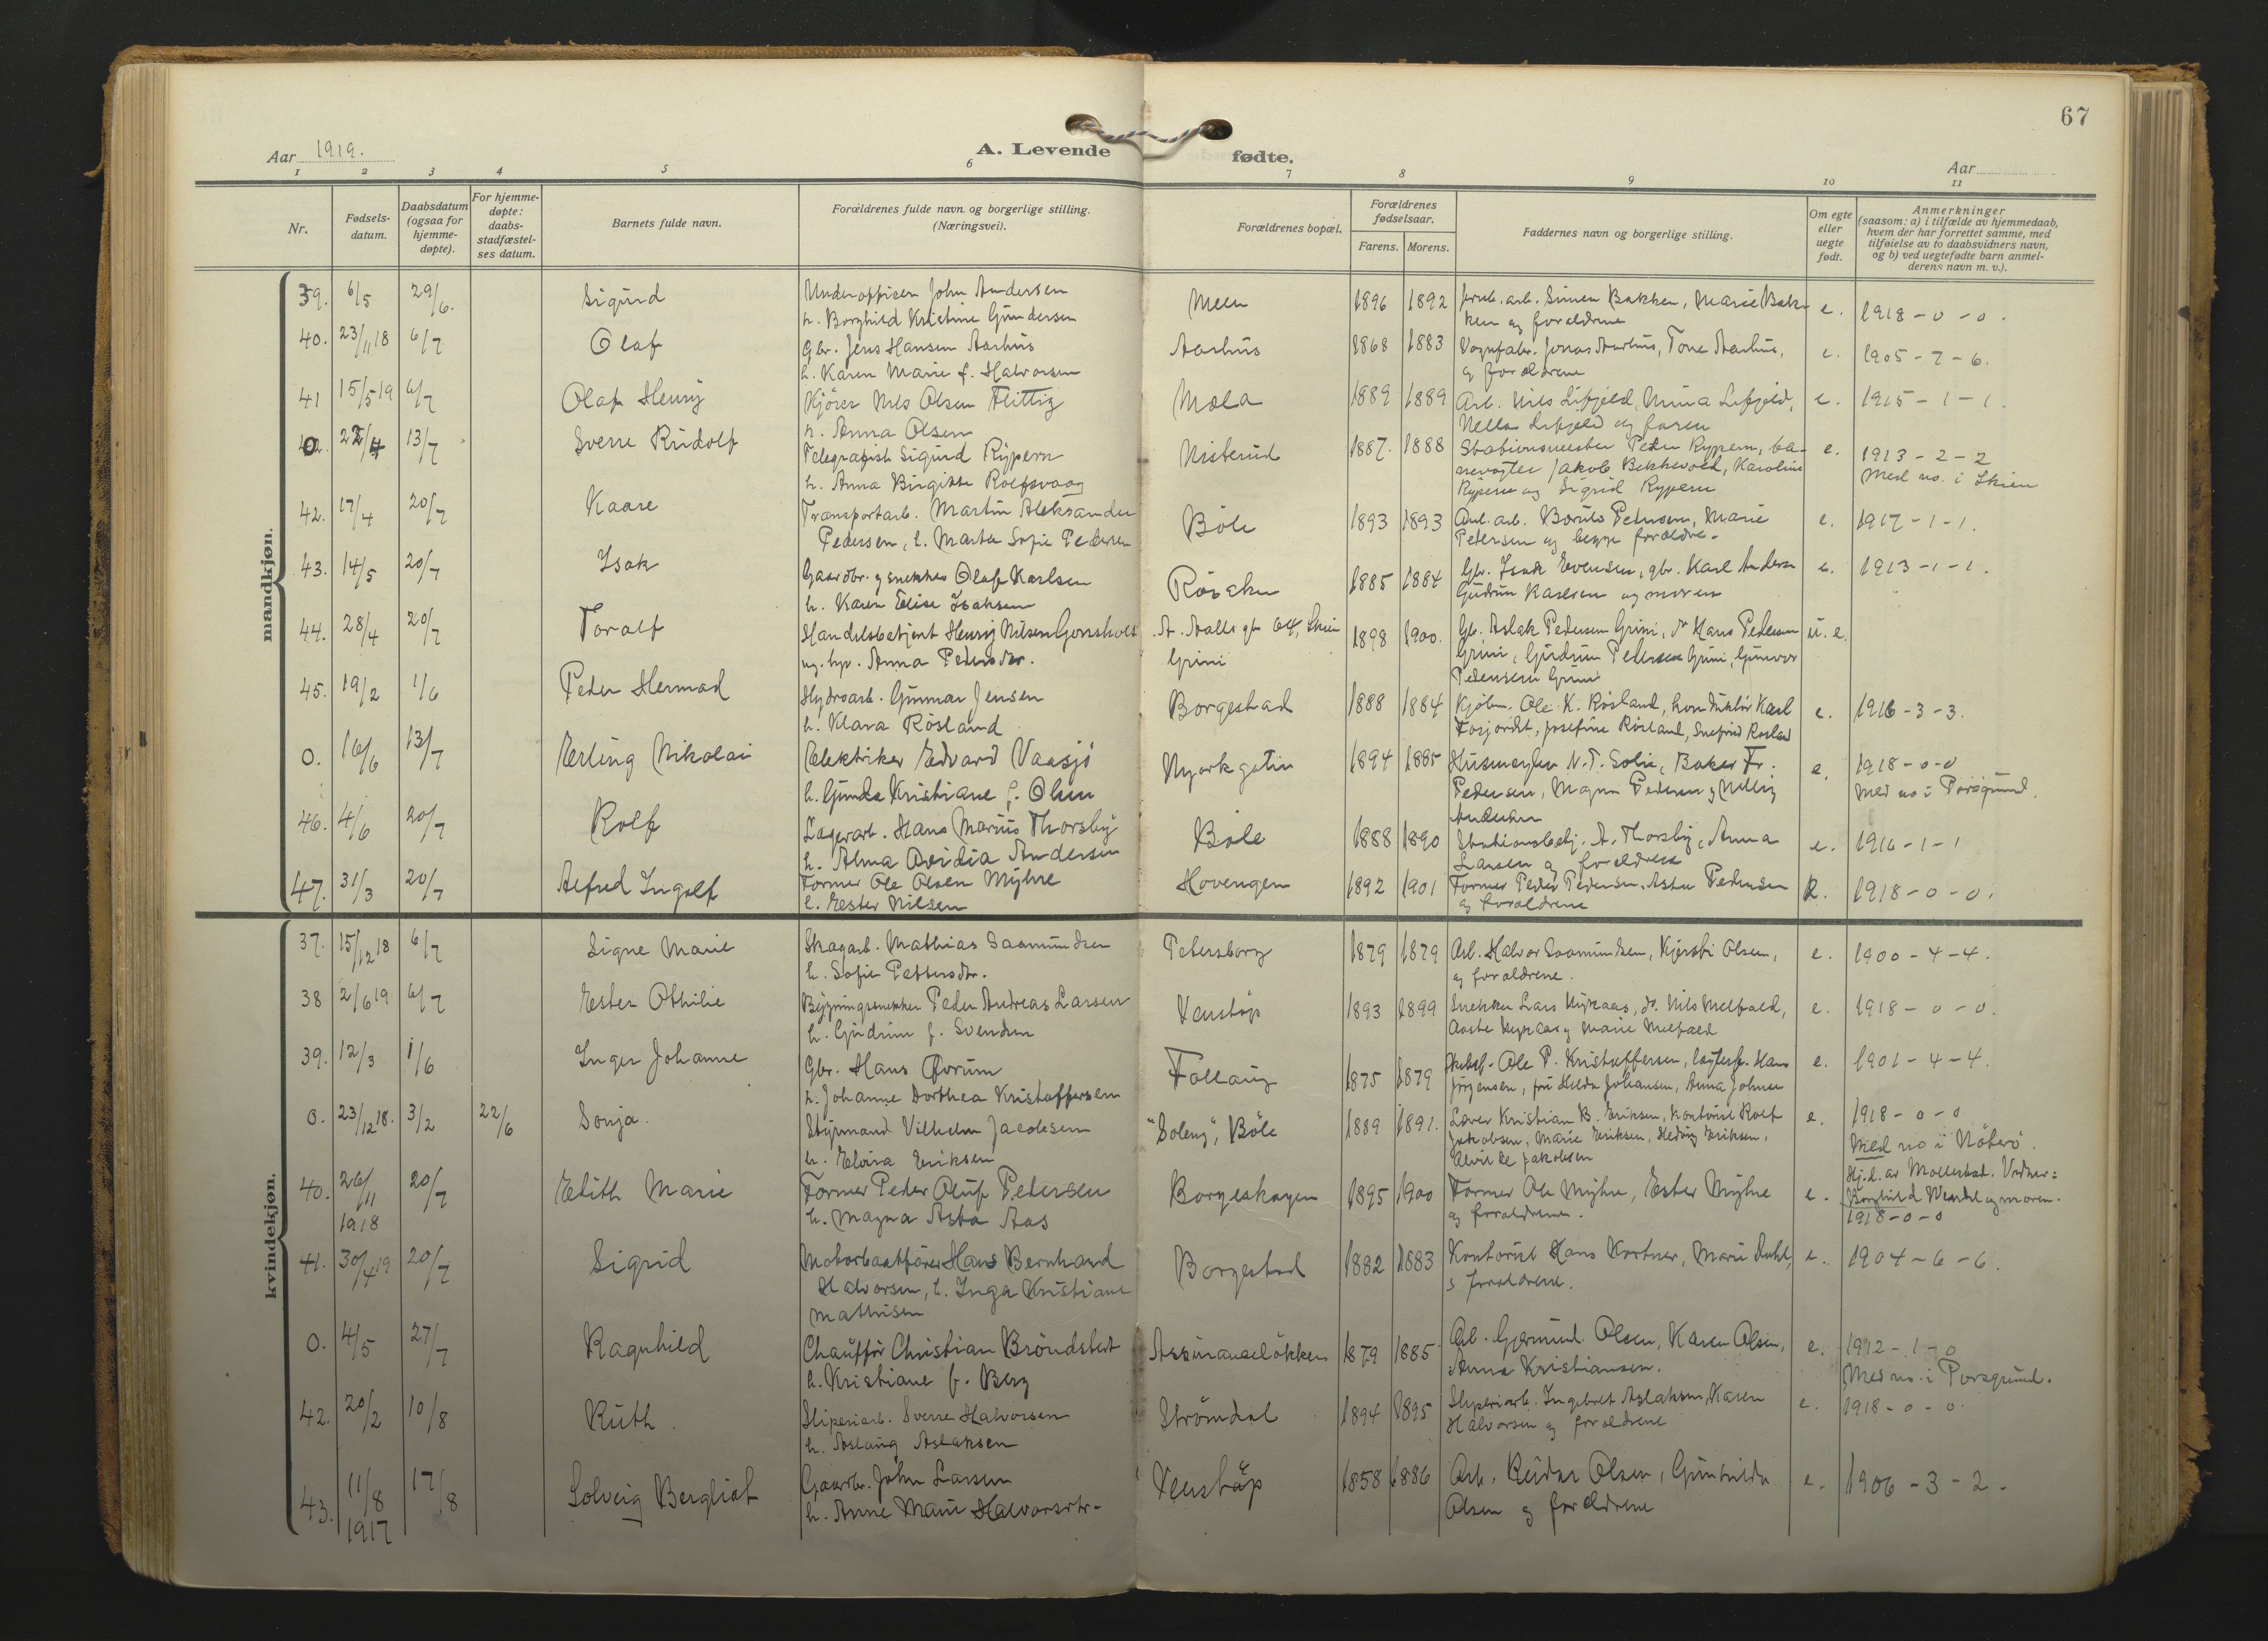 67
Aar 1919.
A. Levende fødte.
Aar
1 2 3 4 5 6 7 8 9 10 11
Nr.
Fødsels-
datum.
Daabsdatum
(ogsaa for
hjemme-
døpte).
For hjemme-
døpte:
daabs-
stadfæstel-
ses datum.
Barnets fulde navn.
Forældrenes fulde navn og borgerlige stilling.
(Næringsvei).
Forældrenes bopæl.
Forældrenes
fødselsaar.
Farens. Morens.
Faddernes navn og borgerlige stilling.
Om egte
eller
uegte
født.
Anmerkninger
(saasom: a) i tilfælde av hjemmedaab,
hvem der har forrettet samme, med
tilføielse av to daabsvidners navn,
og b) ved uegtefødte barn anmel-
derens navn m. v.).
mandkjøn.
39. 6/5 29/6. Sigurd Underofficer John Andersen Meen 1896 1892 Simen Bakken, Marie Bak- e. 1918-0-0.
h. Borghild Kristine Gundersen ken og forældrene
40. 23/11 18 6/7 Olaf Gbr. Jens Hansen Aarhus Aarhus 1868 1883 Vognfabr. Jonas Aarhus, Tone Aarhus, e. 1905-7-6.
h. Karen Marie f. Halvorsen og forældrene
41 15/5 19 6/7 Olaf Henry Kjører Nils Olsen Flittig Mæla 1889 1889 Arb. Nils Lifjeld, Mina Lifjeld, e. 1915-1-1.
h. Anna Olsen Nella Lifjeld og faren
0. 22/4 13/7 Sverre Rudolf Telegrafist Sigurd Rypern Nisterud 1887. 1888 Stationsmester Peder Rypern, ba- e. 1913-2-2
h. Anna Birgitte Rolfsvaag nevogter Jakob Bekkevold, Karoline Med no. i Skien
Rypern og Sigrid Rypern
42. 17/4 20/7 Kaare Transportarb. Martin Aleksander Böle 1893 1893 Petersen, Marie e. 1917-1-1.
Pedersen, h. Marta Sofie Pedersen Petersen og begge forældre.
43. 14/5 20/7 Isak Gaardbr. og snekker Olaf Karlsen 1885 1884 Gbr. Isak Evensen, gbr. Karl Anders e. 1913-1-1.
h. Karen Elise Isaksen Gudrun Karlsen og moren
44. 28/4 20/7 Toralf Handelsbetjent Henry Nilsen Gonsholt A. Aalls gt. 64, Skien 1898 1900. Gb. Aslak Pedersen Grini, Hans Pedersen u.e.
ug. hp. Anna Pedersdtr. Grini Grini, Gudrun Pedersen Grini, Gunvor
Pedersen Grini
45. 19/2 1/6 Peder Hermod Hydroarb. Gunnar Jensen Borgestad 1888 1884 Kjøbm. Ole K. Rösland, konduktör Karl e. 1916-3-3.
h. Klara Rösland Josefine Rösland,
0. 16/6 13/7 Erling Nikolai Elektriker Edvard Vaasjö 1894 1885 N. T. Solie, Baker Fr. e. 1918-0-0
h. Gunda Kristiane f. Olsen Pedersen, Magna Pedersen og Med no i Porsgrund.
46. 4/6 20/7 Rolf Lagerarb. Hans Marius Thorsby Böle 1888 1890 Stationsbetj. A. Thorsby, Anna e. 1916-1-1
h. Alma Ovidia Andersen Larsen og forældrene
47. 31/3 20/7 Alfred Ingolf Former Ole Olsen Myhre Hovengen 1892 1901 Former Peder Pedersen, Asta Pedersen e. 1918-0-0.
h. Ester Nilsen og forældrene
kvindekjøn.
37. 15/12 18 6/7 Signe Marie Skogarb. Mathias Saamundsen Petersborg 1879 1879 Arb. Halvor Saamundsen, Kjersti Olsen, e. 1900-4-4.
h. Sofie Pettersdtr. og forældrene.
38 2/6 19 6/7 Ester Othilie Bygningssnekker Peder Andreas Larsen Venstöp 1893 1899 Snekker Lars Nykaas, Nils Melfald, e. 1918-0-0.
h. Gudrun f. Svendsen Aaste Nykaas og Marie Melfald
39. 12/3 1/6 Inger Johanne Gbr. Hans Qvorum Follaug 1875 1879 Ole P. Kristoffersen, Hans e. 1901-4-4.
h. Johanne Dorthea Kristoffersen Jörgensen, fru Hilda Johansen, Anna Johnsen
0. 23/12 18. 3/2 22/6 Sonja. Styrmand Vilhelm Jacobsen "Soleng", Böle 1889 1891. Kristian B. Eriksen, kontorist Rolf e. 1918-0-0
h. Elvira Eriksen Jakobsen, Marie Eriksen, Hedvig Eriksen, Med no i Nöterö.
Jakobsen
40. 26/11 1918 20/7 Edith Marie Former Peder Oluf Petersen Borgeskogen 1895 1900 Former Ole Myhre, Ester Myhre e. Hj.d. av
h. Magna Asta Aas og forældrene. Borghild og moren.
1918-0-0
41. 30/4 19 20/7 Sigrid Motorbaatfører Hans Bernhard Borgestad 1882 1883 Kontorist Hans Kortner, Marie Dahl, e. 1904-6-6.
Halvorsen, h. Inga Kristiane og forældrene.
Mathisen
0. 4/5 27/7 Ragnhild Chauffør Christian Bröndstedt Assuranselökken 1879 1885 Arb. Gjermund Olsen, Karen Olsen, e. 1912-1-0
h. Kristiane f. Berg Anna Kristiansen. Med no. i Porsgrund.
42. 20/2 10/8 Ruth. Sliperiarb. Sverre Halvorsen Strömdal 1894 1895 Sliperiarb. Ingebret Aslaksen, Karen e. 1918-0-0.
h. Aslaug Aslaksen Halvorsen og forældrene
43. 11/8 1917 17/8 Solveig Bergliot Gaardbr. John Larsen Venstöp 1858 1886 Arb. Reidar Olsen, Gunhilda e. 1906-3-2.
h. Anne Marie Halvorsdtr. Olsen og forældrene